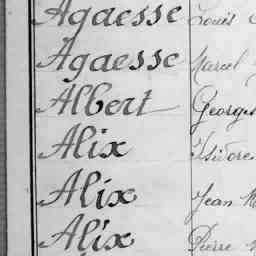 Agaesse Louis
Agaesse Marcel
Albert Georges
Alix Isidore
Alix Jean M
Alix Pierre